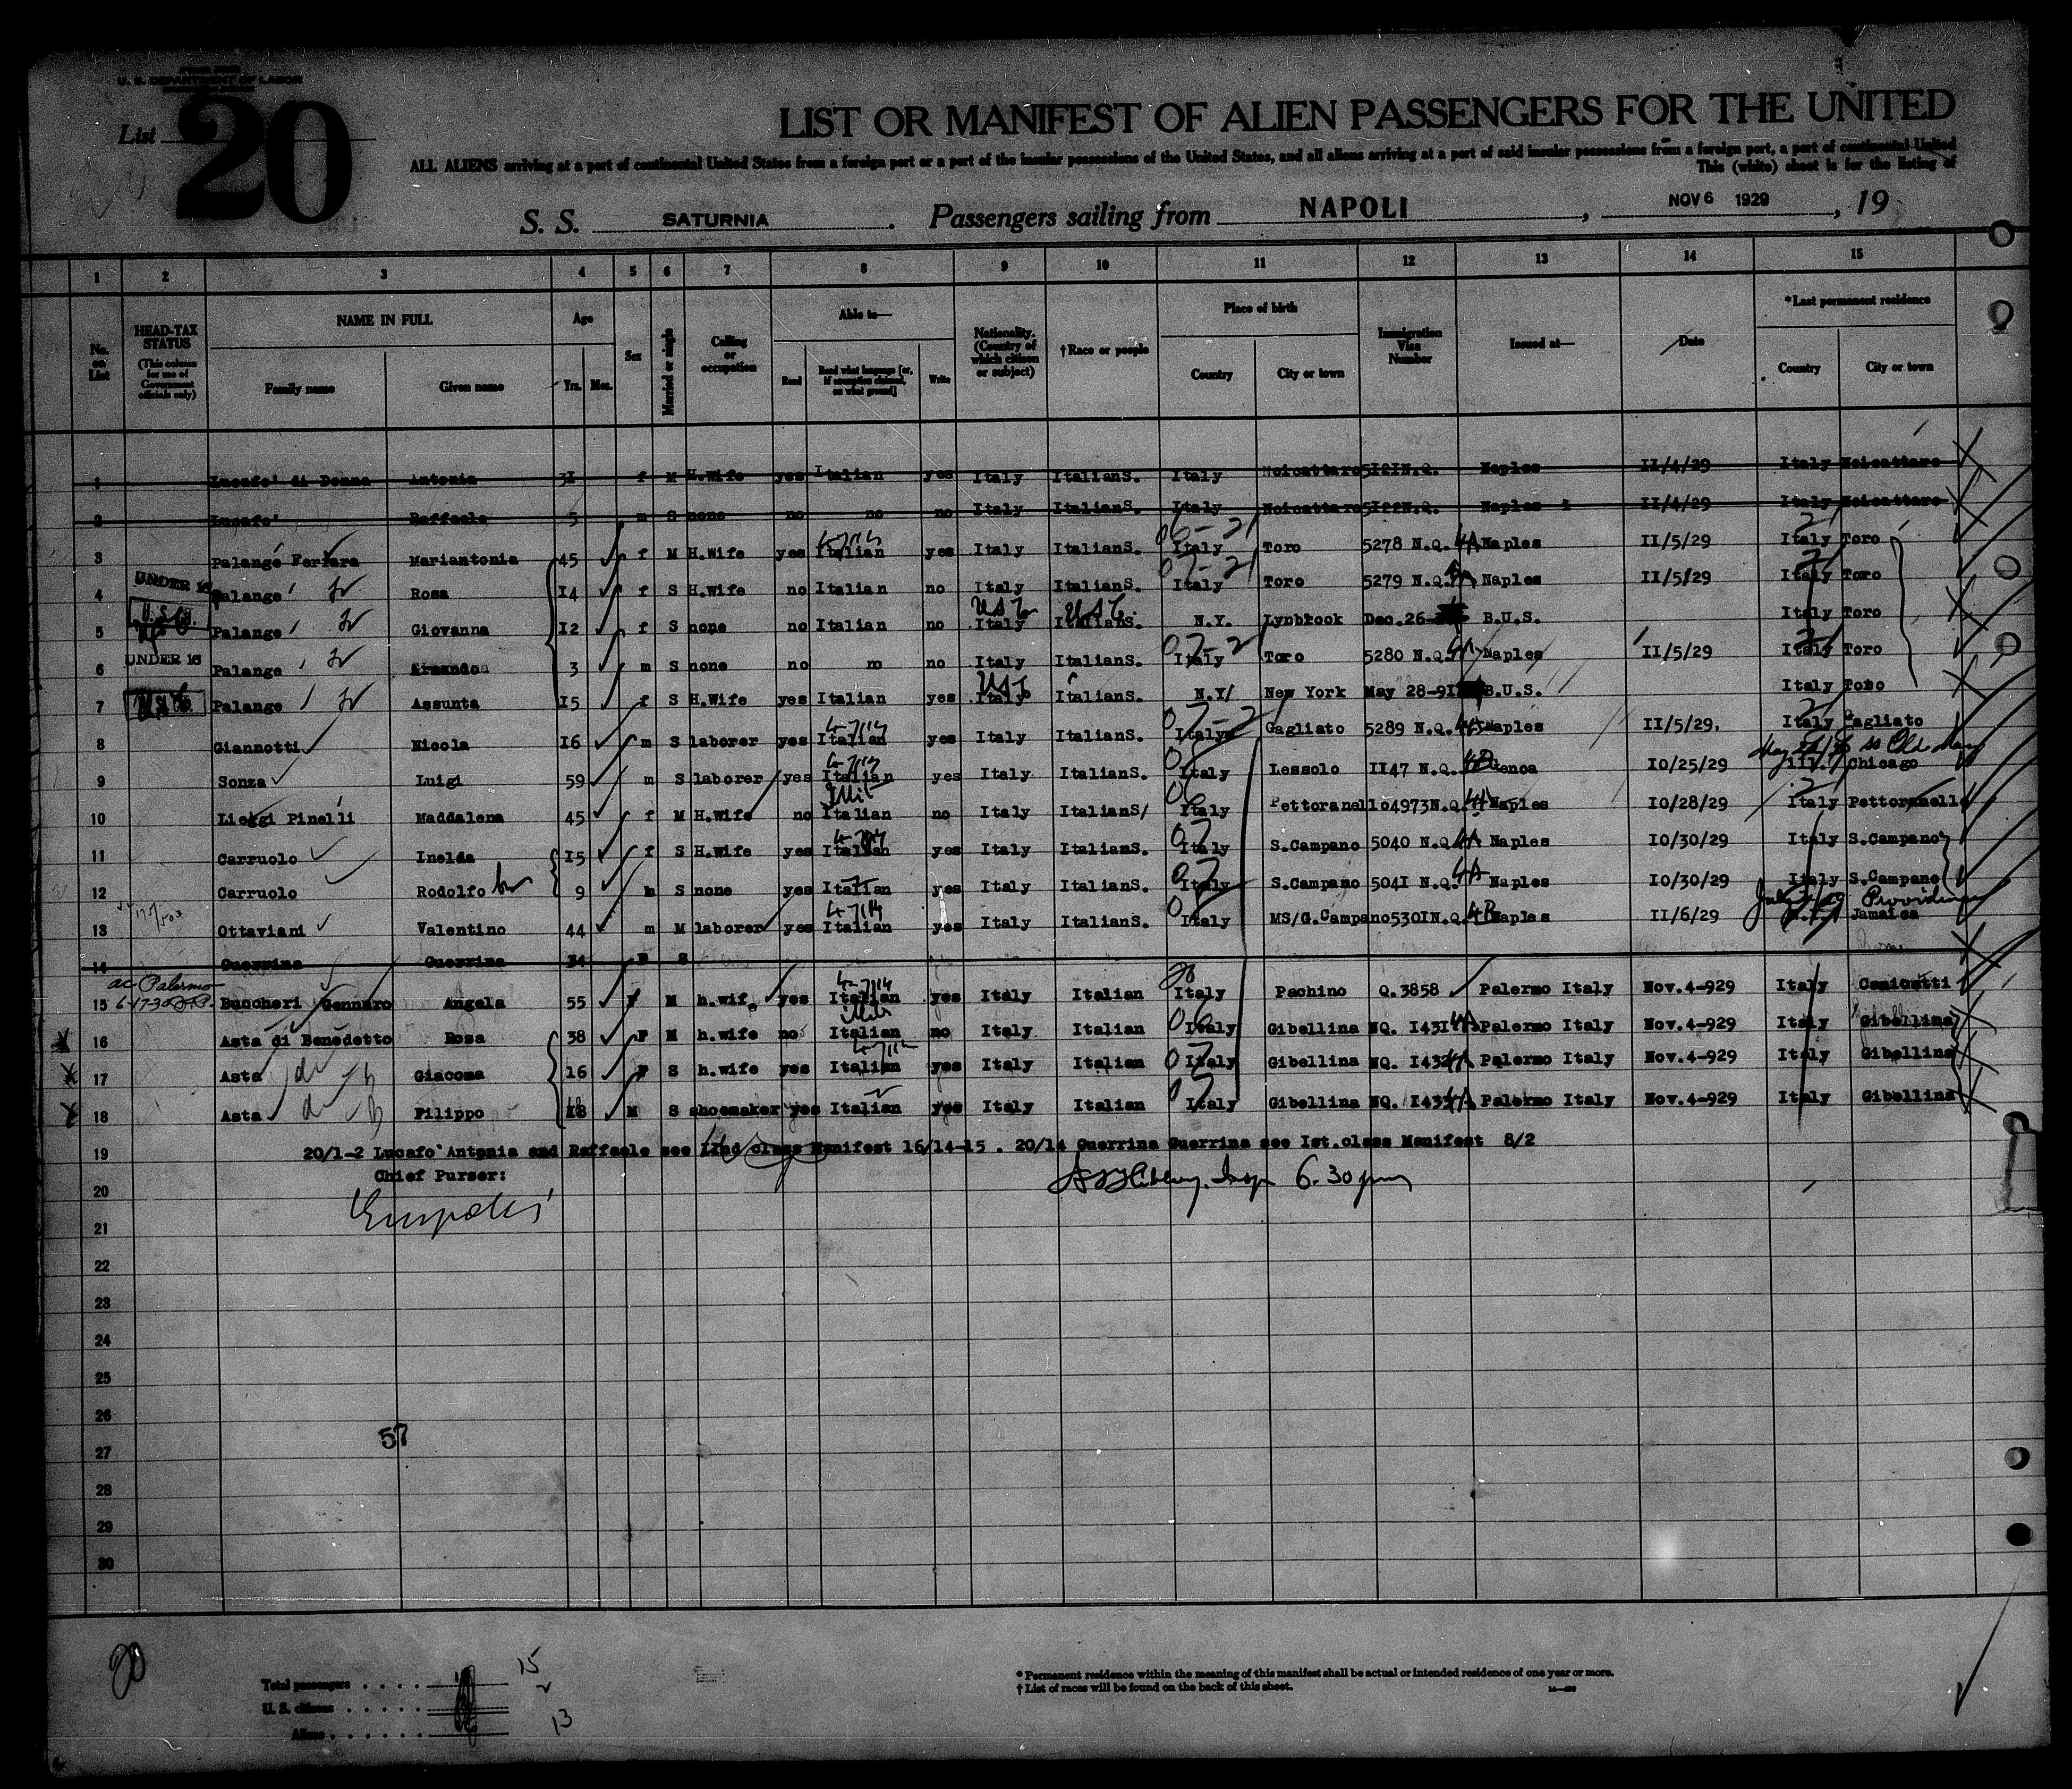 U. S. DEPARTMENT OF LABOR
List 20
LIST OR MANIFEST OF ALIEN PASSENGERS FOR THE UNITED
ALL ALIENS arriving at a port of continental United States from a foreign port or a port of the insular possessions of the United States, and all aliens arriving at a port of said insular possessions from a foreign port, a port of continental United
This (white) sheet is for the listing of
S. S. SATURNIA. Passengers sailing from NAPOLI, NOV 6 1929, 19
1 2 3 4 5 6 7 8 9 10 11 12 13 14 15
No. on List
HEAD-TAX STATUS (This column for use of Government officials only)
NAME IN FULL Family name Given name
Age Yrs. Mos.
Sex
Married or single
Calling or occupation
Able to— Read Read what language [or, if exemption claimed, on what ground] Write
Nationality. (Country of which citizen or subject)
†Race or people
Place of birth Country City or town
Immigration Visa Number
Issued at—
Date
*Last permanent residence Country City or town
1 Lucafo' di Donna Antonia 31 f M H.Wife yes Italian yes Italy ItalianS. Italy Noicattaro 5121N.Q. Naples 11/4/29 Italy Noicattaro
2 Lucafo' Raffaele 5 m S none no no no Italy ItalianS. Italy Noicattaro 5122N.Q. Naples 11/4/29 Italy Noicattaro
3 Palange Ferrara Mariantonia 45 f M H.Wife yes Italian yes Italy ItalianS. Italy Toro 5278 N.Q. Naples 11/5/29 Italy Toro
4 UNDER 16 Palange Rosa 14 f S H.Wife no Italian no Italy ItalianS. Italy Toro 5279 N.Q. Naples 11/5/29 Italy Toro
5 U.S.C. Palange Giovanna 12 f S none no Italian no Italy ItalianS. N.Y. Lynbrook Dec.26- B.U.S. Italy Toro
6 UNDER 16 Palange Armando 3 m S none no no no Italy ItalianS. Italy Toro 5280 N.Q. Naples 11/5/29 Italy Toro
7 Palange Assunta 15 f S H.Wife yes Italian yes Italy ItalianS. N.Y/ New York May 28-91 B.U.S. Italy Toro
8 Giannotti Nicola 16 m S laborer yes Italian yes Italy ItalianS. Italy Gagliato 5289 N.Q. Naples 11/5/29. Italy Gagliato
9 Sonza Luigi 59 m S laborer yes Italian yes Italy ItalianS. Italy Lessolo 1147 N.Q. Genoa 10/25/29 Chicago
10 Lioggi Pinelli Maddalena 45 f M H.Wife no Italian no Italy ItalianS/ Italy Pettoranello 4973N.Q. Naples 10/28/29 Italy Pettoranello
11 Carruolo Inelda 15 f S H.Wife yes Italian yes Italy ItalianS. Italy S.Campano 5040 N.Q. Naples 10/30/29 Italy S.Campano
12 Carruolo Rodolfo 9 m S none yes Italian yes Italy ItalianS. Italy S.Campano 5041 N.Q. Naples 10/30/29 Italy S.Campano
13 Ottaviani Valentino 44 m M laborer yes Italian yes Italy ItalianS. Italy MS/G.Campano 5301N.Q. Naples 11/6/29 Jamaica
14 Guerrina Guerrina 34 F S
ac Palermo
15 6-17-30 Buccheri Gennaro Angela 55 f M h.wife yes Italian yes Italy Italian Italy Pachino Q.3858 Palermo Italy Nov.4-929 Italy Canicatti
16 Asta di Benedetto Rosa 38 F M h.wife no Italian no Italy Italian Italy Gibellina NQ. 1431 Palermo Italy Nov.4-929 Italy Gibellina
17 Asta Giacoma 16 F S h.wife yes Italian yes Italy Italian Italy Gibellina NQ. 1432 Palermo Italy Nov.4-929 Italy Gibellina
18 Asta Filippo 18 M S shoemaker yes Italian yes Italy Italian Italy Gibellina NQ. 1433 Palermo Italy Nov.4-929 Italy Gibellina
19 20/1-2 Lucafo' Antonia and Raffaele see IInd class Manifest 16/14-15 . 20/14 Guerrina Guerrina see Ist.class Manifest 8/2
Chief Purser:
20 6.30 pm
21
22
23
24
25
26
57
27
28
29
30
20
Total passengers 15
U. S. citizens 2
Aliens 13
* Permanent residence within the meaning of this manifest shall be actual or intended residence of one year or more.
† List of races will be found on the back of this sheet.